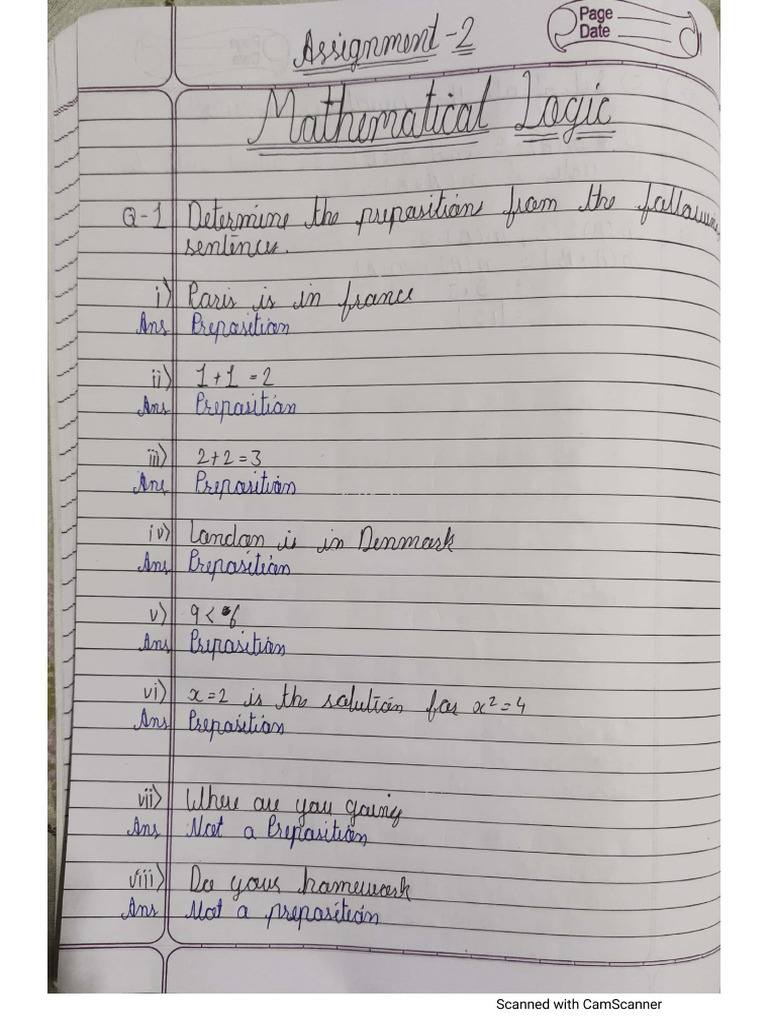 Assignment-2
Page
Date
Mathematical Logic
Q-1 Determine the prepositions from the
sentences.
i) Paris is in france
Ans Preposition
ii) 1+1=2
Ans Preposition
iii) 2+2=3
Ans Preposition
iv) London is in Denmark
Ans Preposition
v) 9<6
Ans Preposition
vi) x=2 is the solution for x²=4
Ans Preposition
vii) Where are you going
Ans Not a Preposition
viii) Do your homework
Ans Not a preposition
Scanned with CamScanner